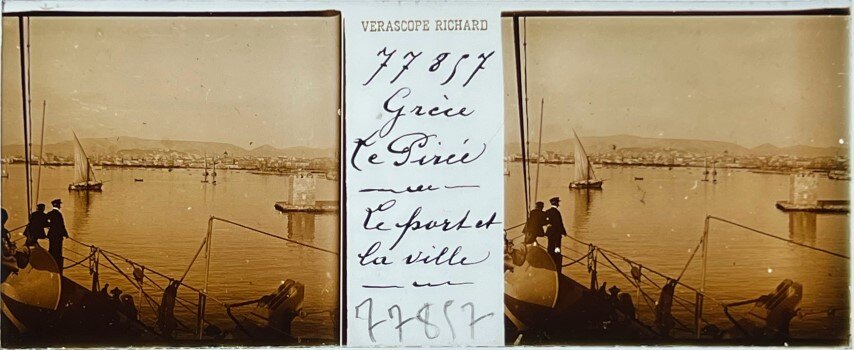 VERASCOPE RICHARD
77857
Grèce
Le Pirée
Le port et
la ville
77857